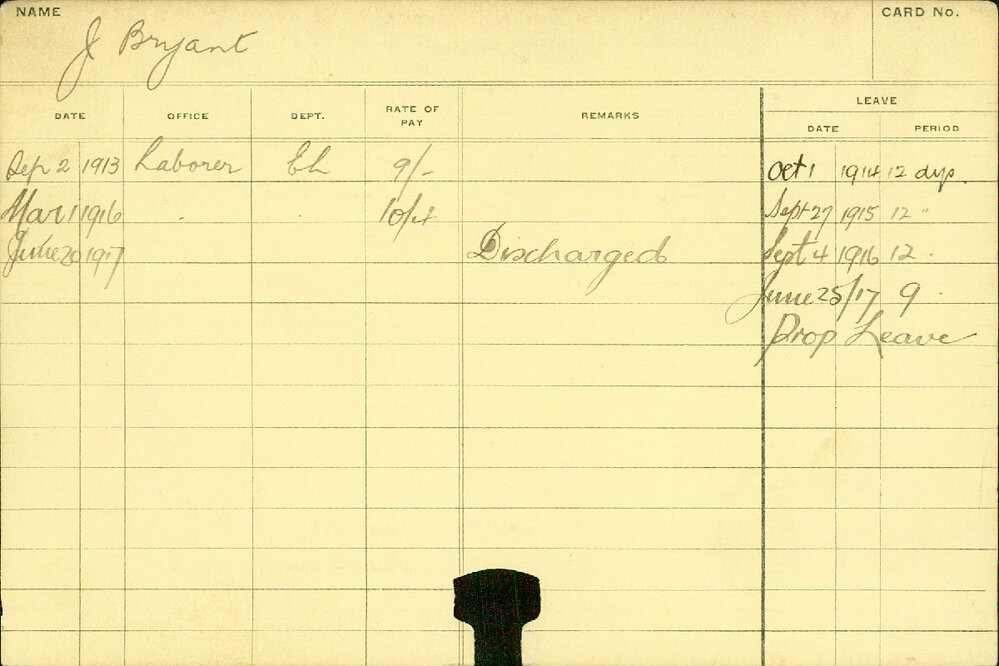 NAME
J Bryant
CARD No.
DATE OFFICE DEPT. RATE OF PAY REMARKS LEAVE
DATE PERIOD
Sep 2 1913 Laborer 9/- Oct 1 1914 12 dys.
Mar 1 1916 . . 10/4 Sept 27 1915 12 "
June 20 1917 Discharged Sept 4 1916 12 .
June 25/17 9 .
Prop Leave